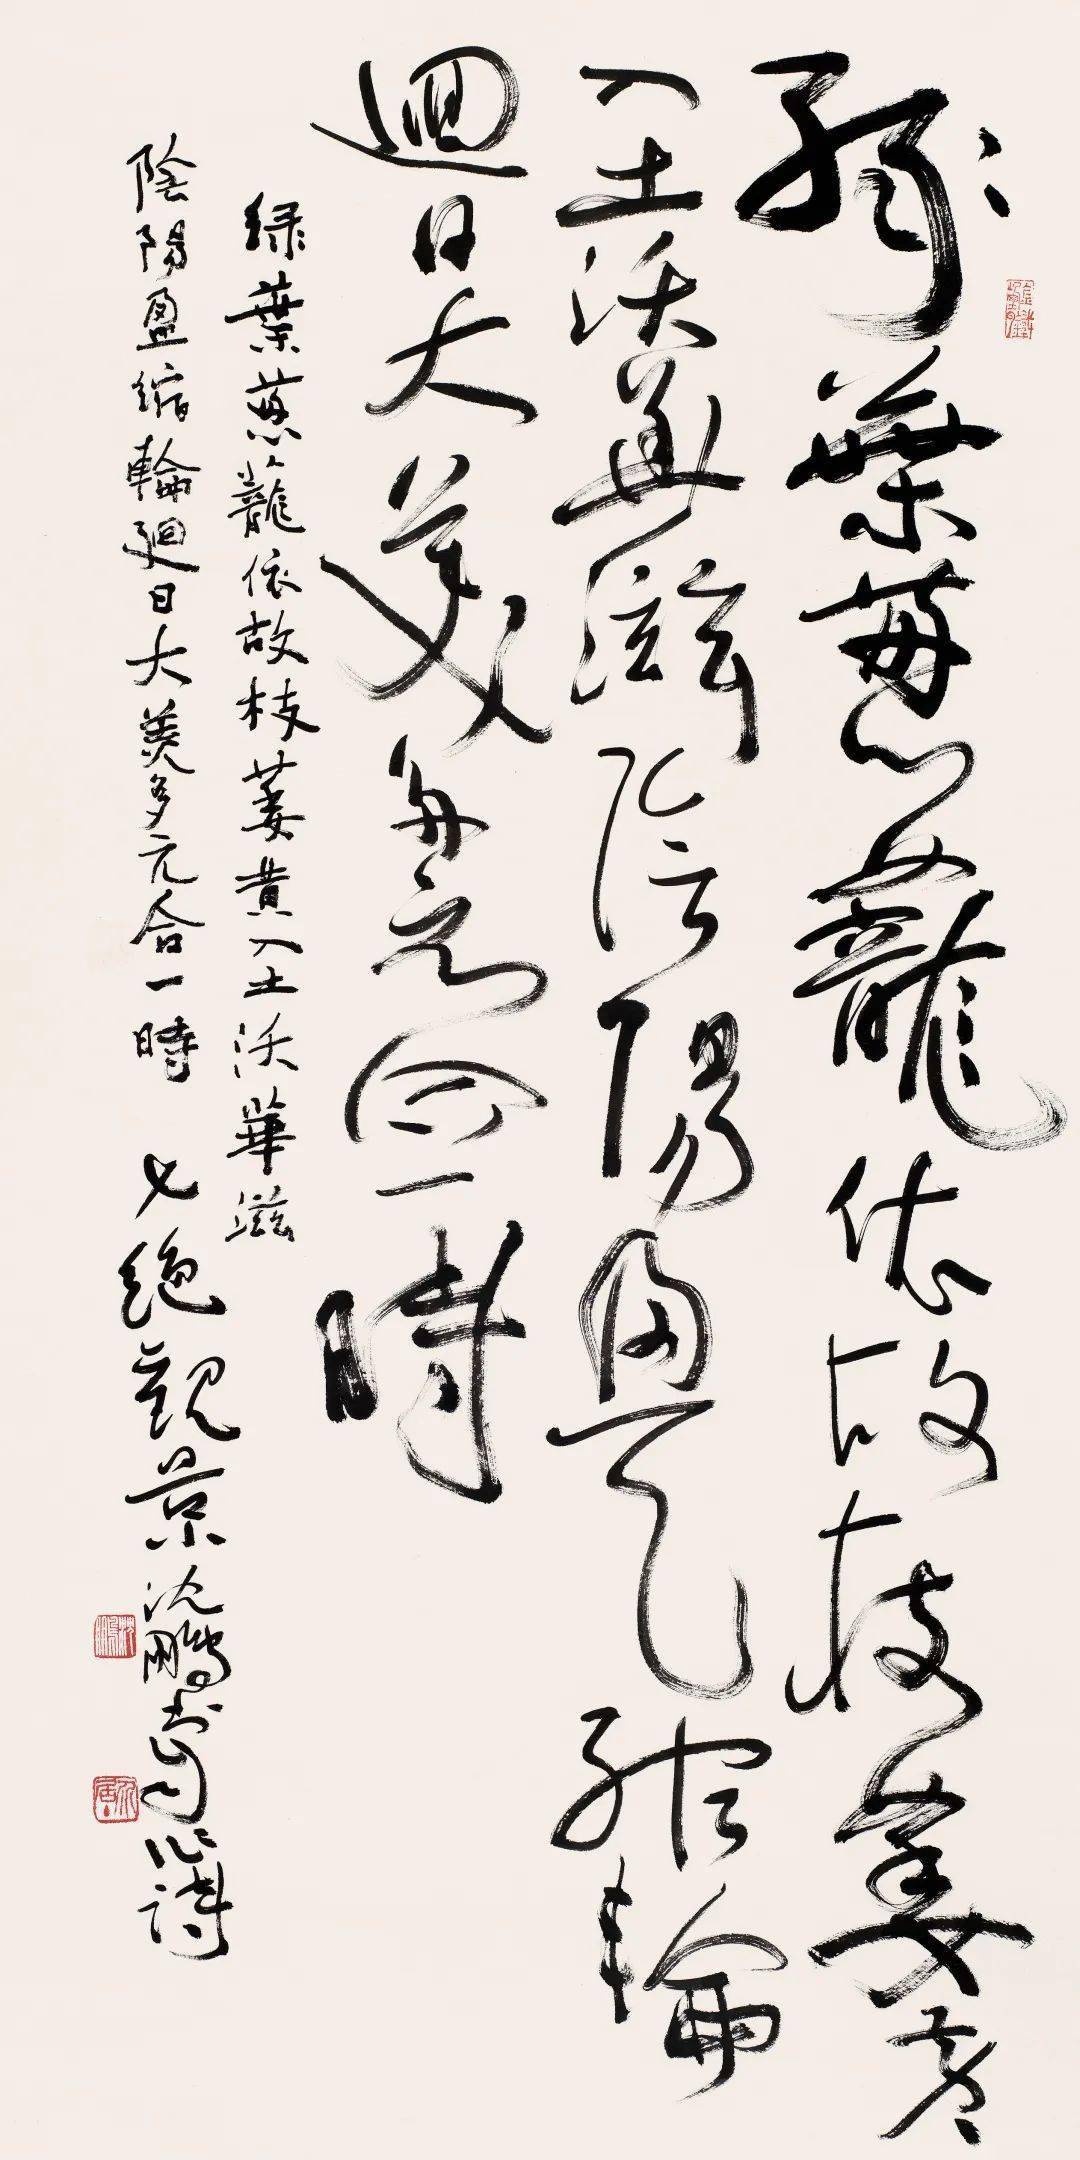 綠葉蔥蘢依故枝萎黃
入土沃華滋陰陽盈縮輪
迴日大美多元合一時
緑葉蔥蘢依故枝萎黄入土沃華滋
陰陽盈縮輪廻日大美多元合一時 七絶觀景沈鵬書句作詩
沈鵬